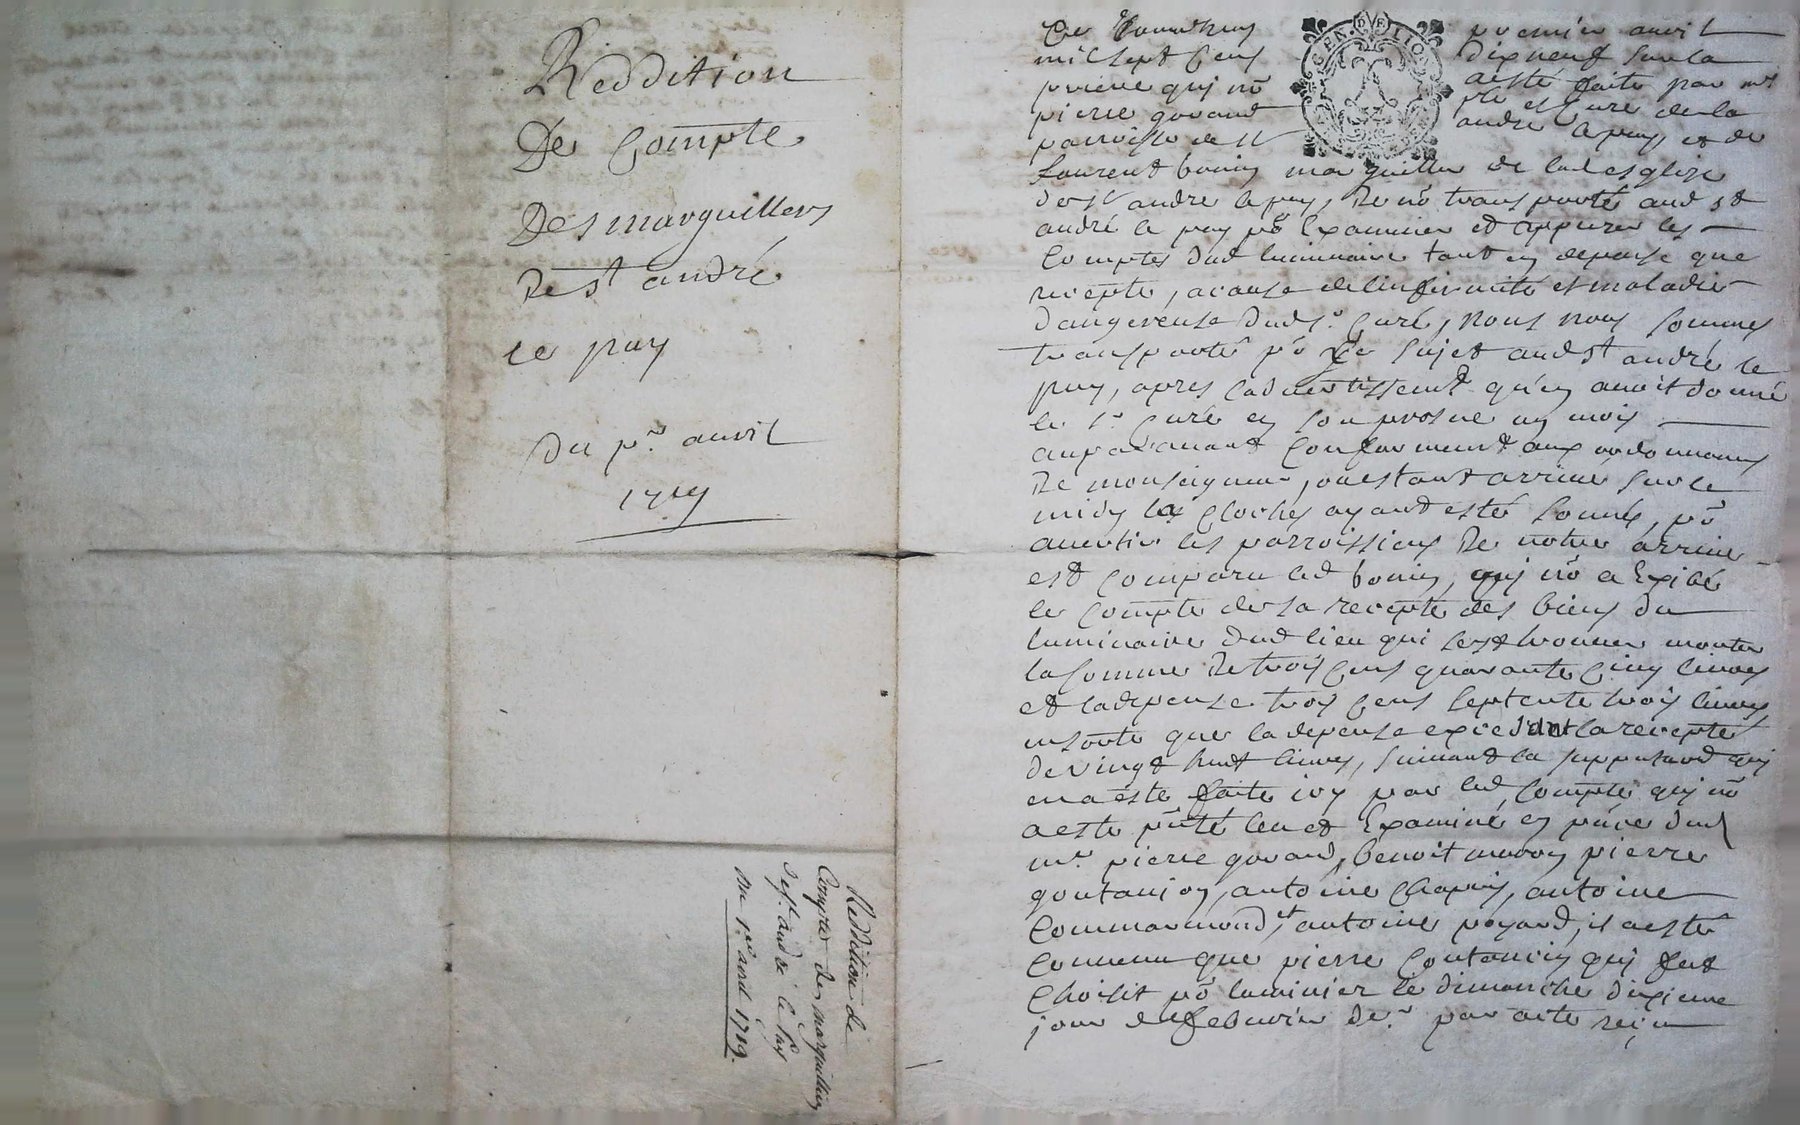 Reddition
De Compte
Des marguilliers
De st andré
le puy
Du pr. avril
1719
Reddition de
Compte des marguilliers
de st. andré le Puy
du 1er. avril 1719.
Ce Jourdhuy premier avril
mil sept Cens dix neuf sur la
priere quj nō a esté faite par mre
pierre gouard ptre et Curé de la
parroisse de st andré le puy, et de
Laurent bonin marguillier de lad esglize
de st andré le puy, De nō transporter aud st
andré le puy pō Examiner et appurer les
Comptes dud luminaire tant en depense que
recepte, a cause de linfirmité et maladie
dangereuse dud sr. Curé, Nous nous sommes
transporté pō Ce sujet aud st andré le
puy, apres ladvertissemt qu'en avoit donné
le sr. Curé en son prosne un mois
auparavant Conformemt aux ordonnances
De monseigneur, ou estant arrivé sur le
midy les Cloches ayand esté sonné, pō
avertir les parroissiens De notre arrivée
est Comparu led bonin, quj nō a Exibé
le Compte de sa recepte des biens du
luminaire dud lieu qui sest trouver monter
la somme De trois Cens quarante Cinq livres
et la depense trois Cens septente trois livres
en sorte que la depense excedant la recepte
de vingt huit livres, suivant la supputaōn quj
en a esté faite icy par led Compte quj nō
a esté pñté leu et Examiné en pñce dud
mre. pierre gouard, benoit pierre
goutanion, antoine Chapuis, antoine
Commarmond, et antoine poyard, il a esté
Convenu que pierre Contanion quj fut
Choisit pō luminier le dimanche dixieme
jour de febvrier der. par acte reçu